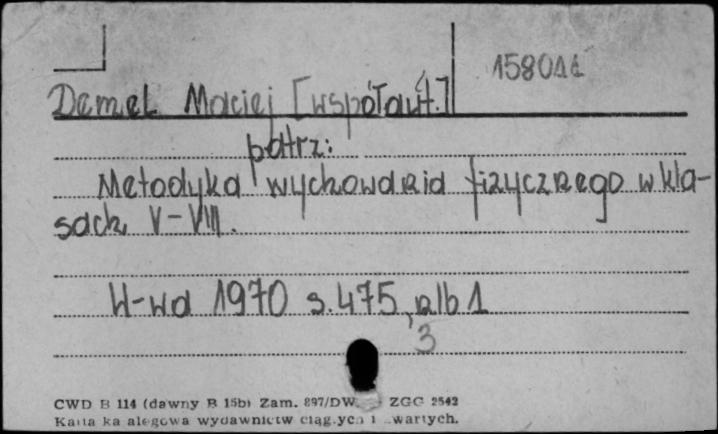 158011
Demel Maciej [współaut.]
patrz:
Metodyka wychowania fizycznego w kla-
sach V-VIII.
W-wa 1970 s. 475, nlb 1
3
CWD B 114 (dawny B 15b) Zam. 897/DW ZGG 2542
Karta ka alogowa wydawnictw ciąg.ych i wartych.